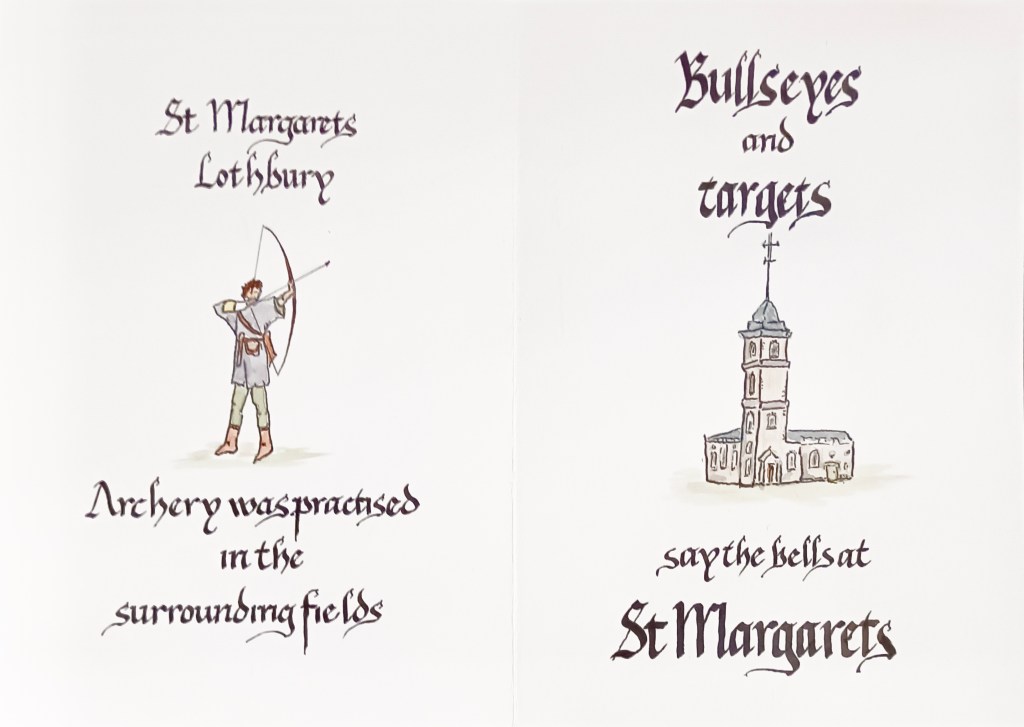 St Margarets
Lothbury
Archery was practised
in the
surrounding fields
Bullseyes
and
targets
say the bells at
St Margarets